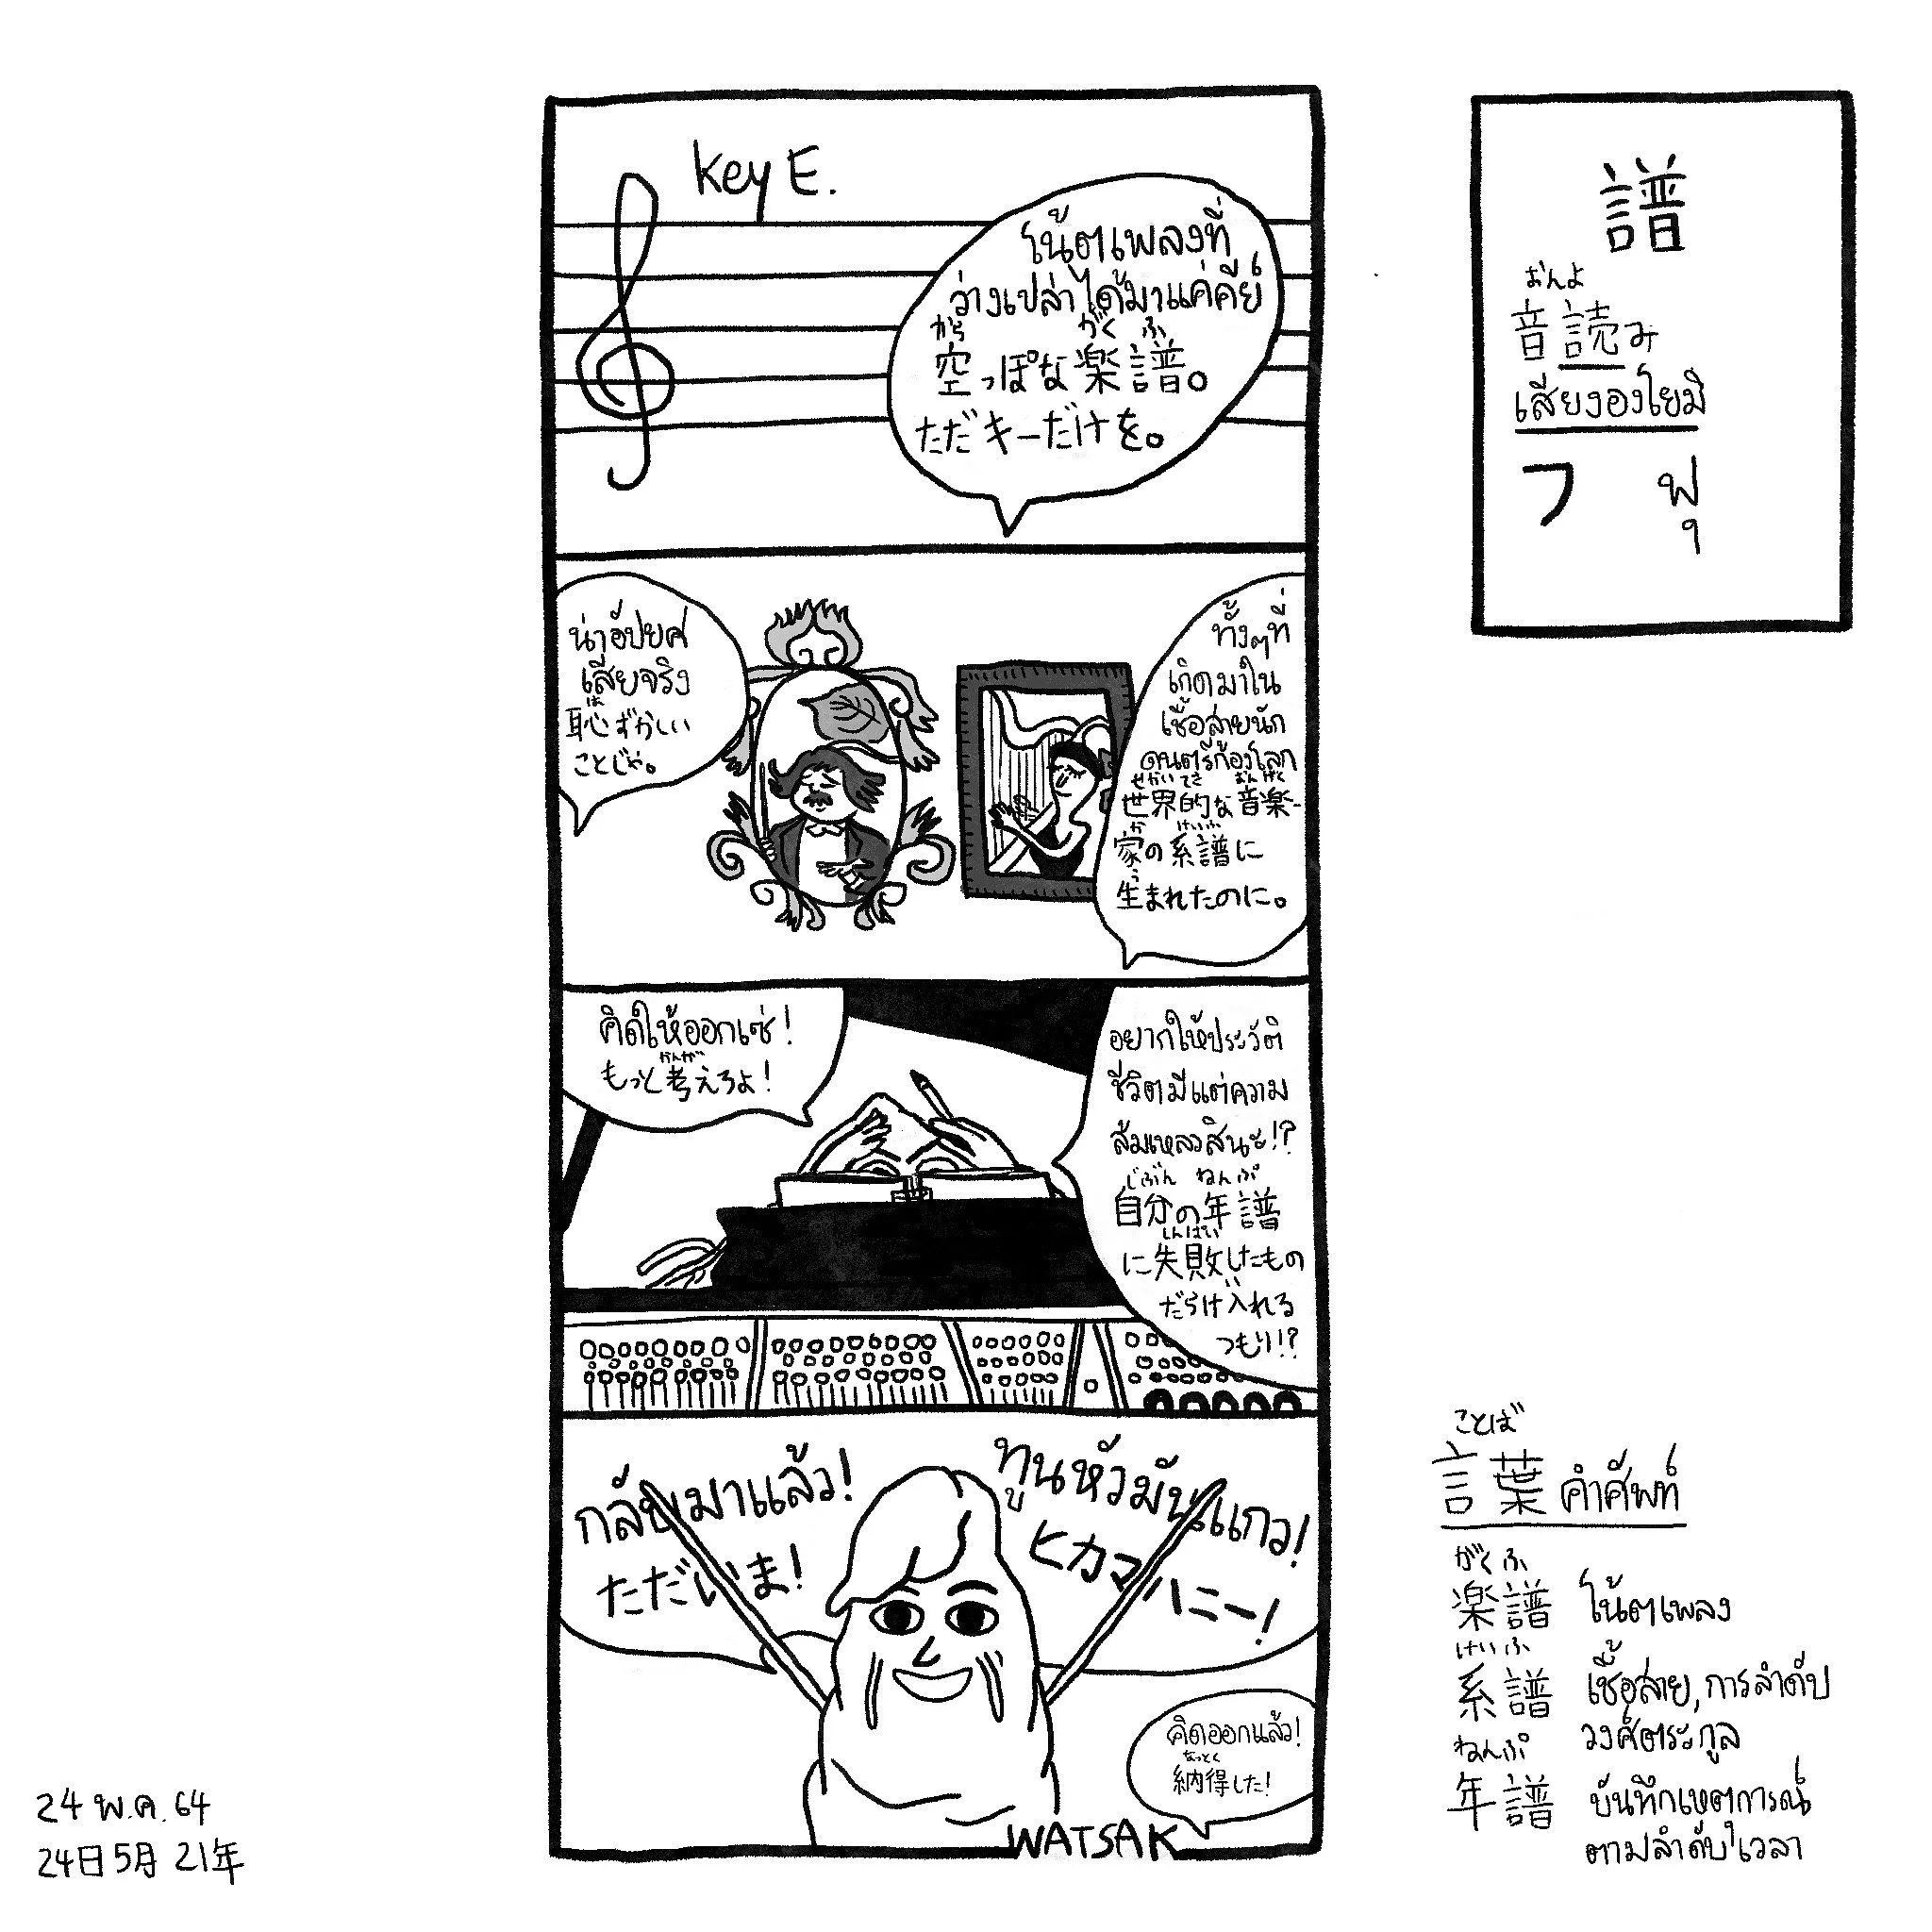 Key E.
โน้ตเพลงที่
ว่างเปล่าได้มาแค่คีย์
から がく ふ
空っぽな楽譜。
ただキーだけを。
譜
おんよ
音読み
เสียงองโยมิ
フ ฟุ
ทั้งๆที่
เกิดมาใน
เชื้อสายนัก
ดนตรีก้องโลก
せかいてき おんがく
世界的な音楽-
か けいふ
家の系譜に
う
生まれたのに。
น่าอัปยศ
เสียจริง
は
恥ずかしい
ことじゃ。
คิดให้ออกเซ่!
かんが
もっと考えろよ!
อยากให้ประวัติ
ชีวิตมีแต่ความ
ล้มเหลวสินะ!?
じぶん ねんぷ
自分の年譜
しんぱい
に失敗したもの
い
だらけ入れる
つもり!?
กลับมาแล้ว!
ただいま!
ทูนหัวมันแกว!
ヒカマハニー!
คิดออกแล้ว!
なっとく
納得した!
WATSAK
ことば
言葉 คำศัพท์
がくふ
楽譜 โน้ตเพลง
けいふ
系譜 เชื้อสาย, การลำดับ
วงศ์ตระกูล
ねんぷ
年譜 บันทึกเหตุการณ์
ตามลำดับเวลา
24 พ.ค. 64
24日5月 21年